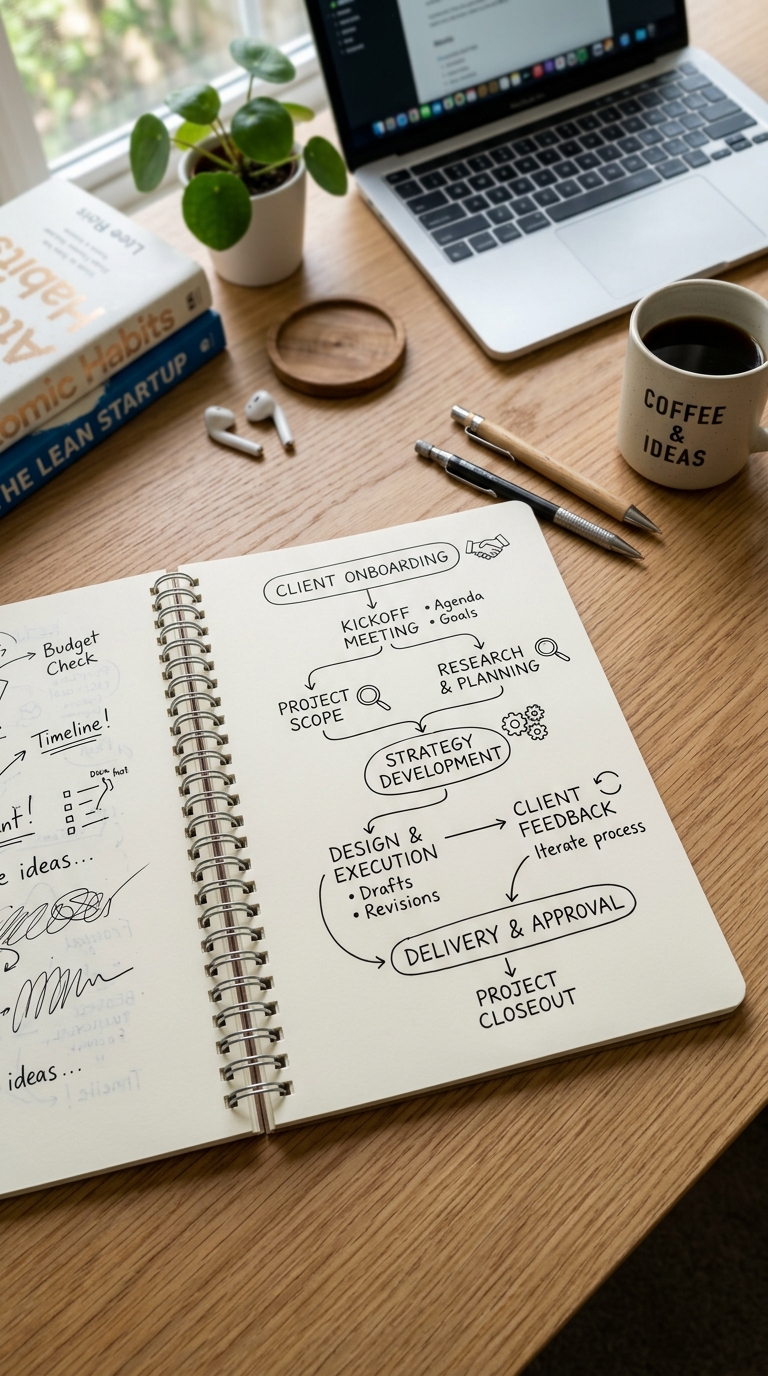 Atomic Habits
THE LEAN STARTUP
COFFEE
&
IDEAS
Budget
Check
Timeline!
ideas...
ideas...
CLIENT ONBOARDING
KICKOFF
MEETING
• Agenda
• Goals
PROJECT
SCOPE
RESEARCH
& PLANNING
STRATEGY
DEVELOPMENT
DESIGN &
EXECUTION
• Drafts
• Revisions
CLIENT
FEEDBACK
Iterate process
DELIVERY & APPROVAL
PROJECT
CLOSEOUT